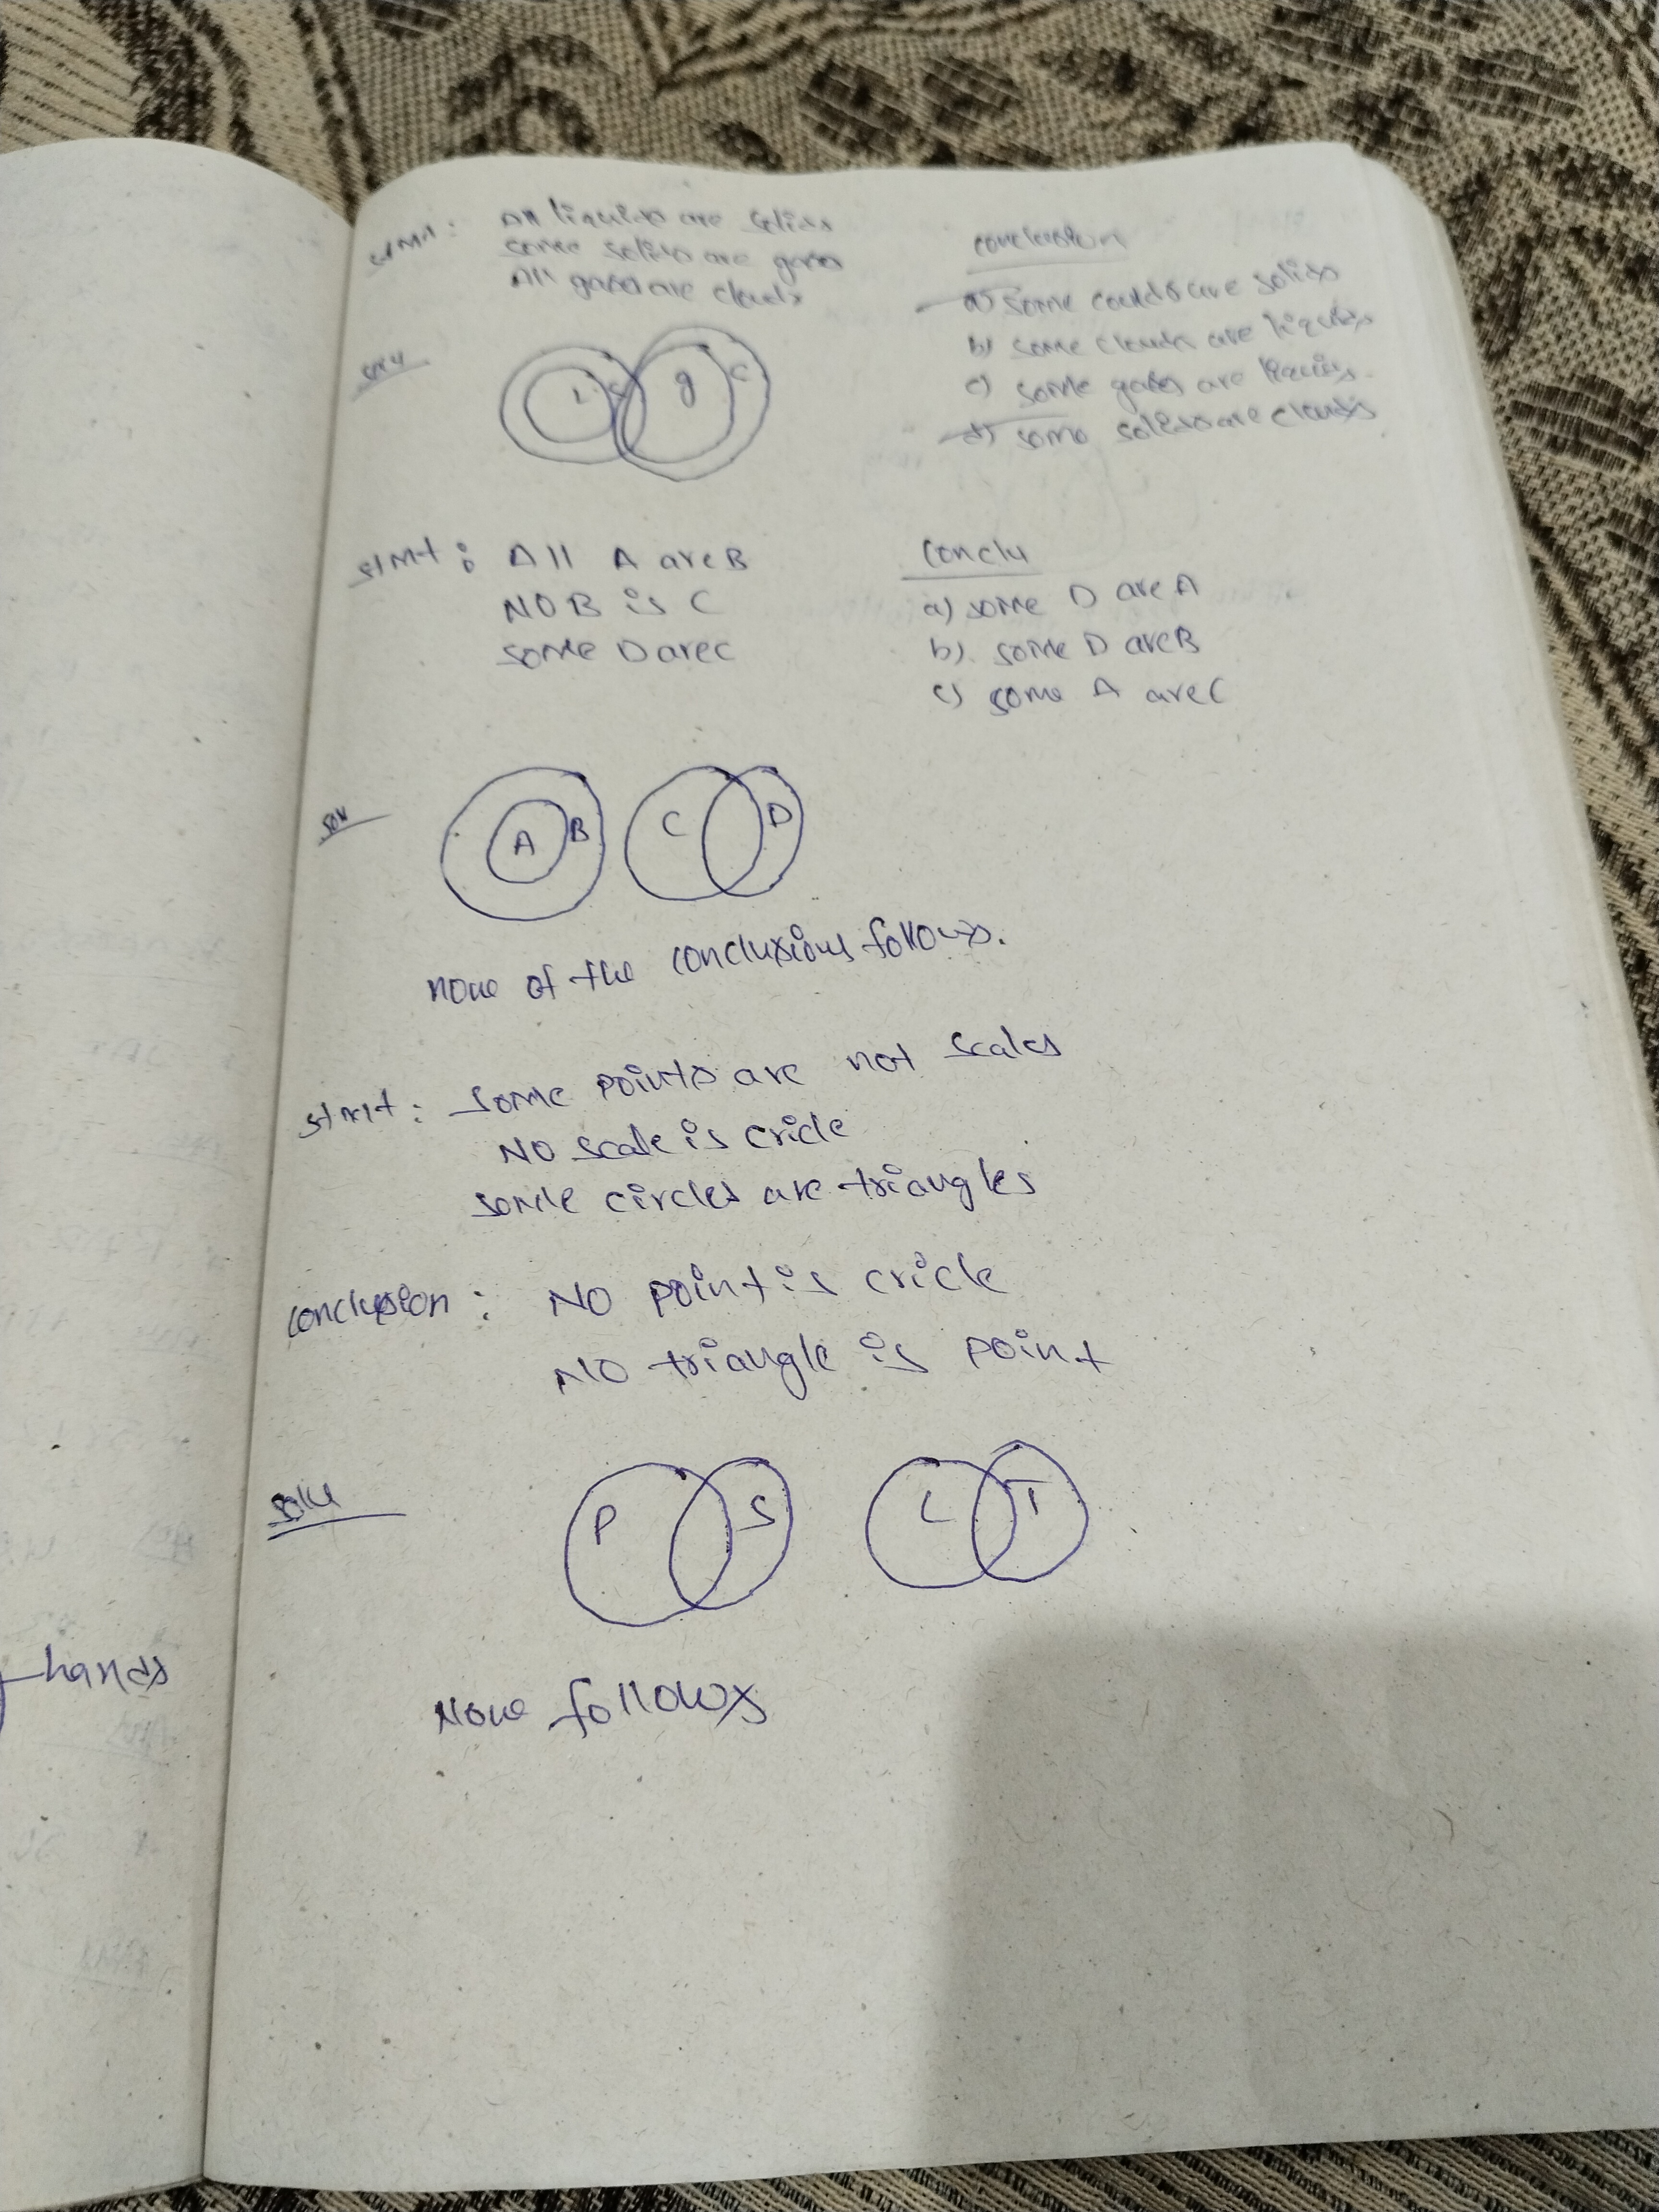 stmt: All liquids are solids
some solids are gases
All gases are clouds
conclusion
a) some coulds are solids
b) some clouds are liquids
c) some gases are liquids.
d) some solids are clouds
soln
L S g C
stmt: All A are B
NO B is C
some D are C
Conclu
a) some D are A
b). some D are B
c) some A are C
soln
A B C D
none of the conclusions follows.
stmt: some points are not scales
NO scale is cricle
some circles are triangles
conclusion: NO point is cricle
NO triangle is point
soln
P S C T
hands
None follows